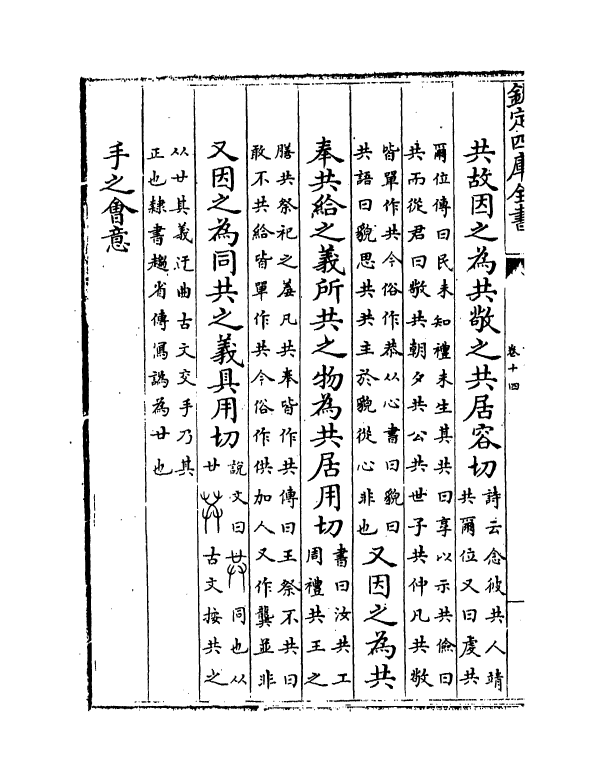 欽定四庫全書
卷十四
共故因之為共敬之共居容切
詩云念彼共人靖
共爾位又曰虔共
爾位傳曰民未知禮未生其共曰享以示共儉曰
共而從君曰敬共朝夕共公共世子共仲凡共敬
皆單作共今俗作恭从心書曰貌曰
共語曰貌思共共主於貌從心非也
又因之為共
奉共給之義所共之物為共居用切
書曰汝共工
周禮共王之
膳共祭祀之羞凡共奉皆作共傳曰王祭不共曰
敢不共給皆單作共今俗作供加人又作龔並非
又因之為同共之義具用切
說文曰同也从
廿古文按共之
从廿其義迂曲古文交手乃其
正也隸書趨省傳寫譌為廿也
手之會意